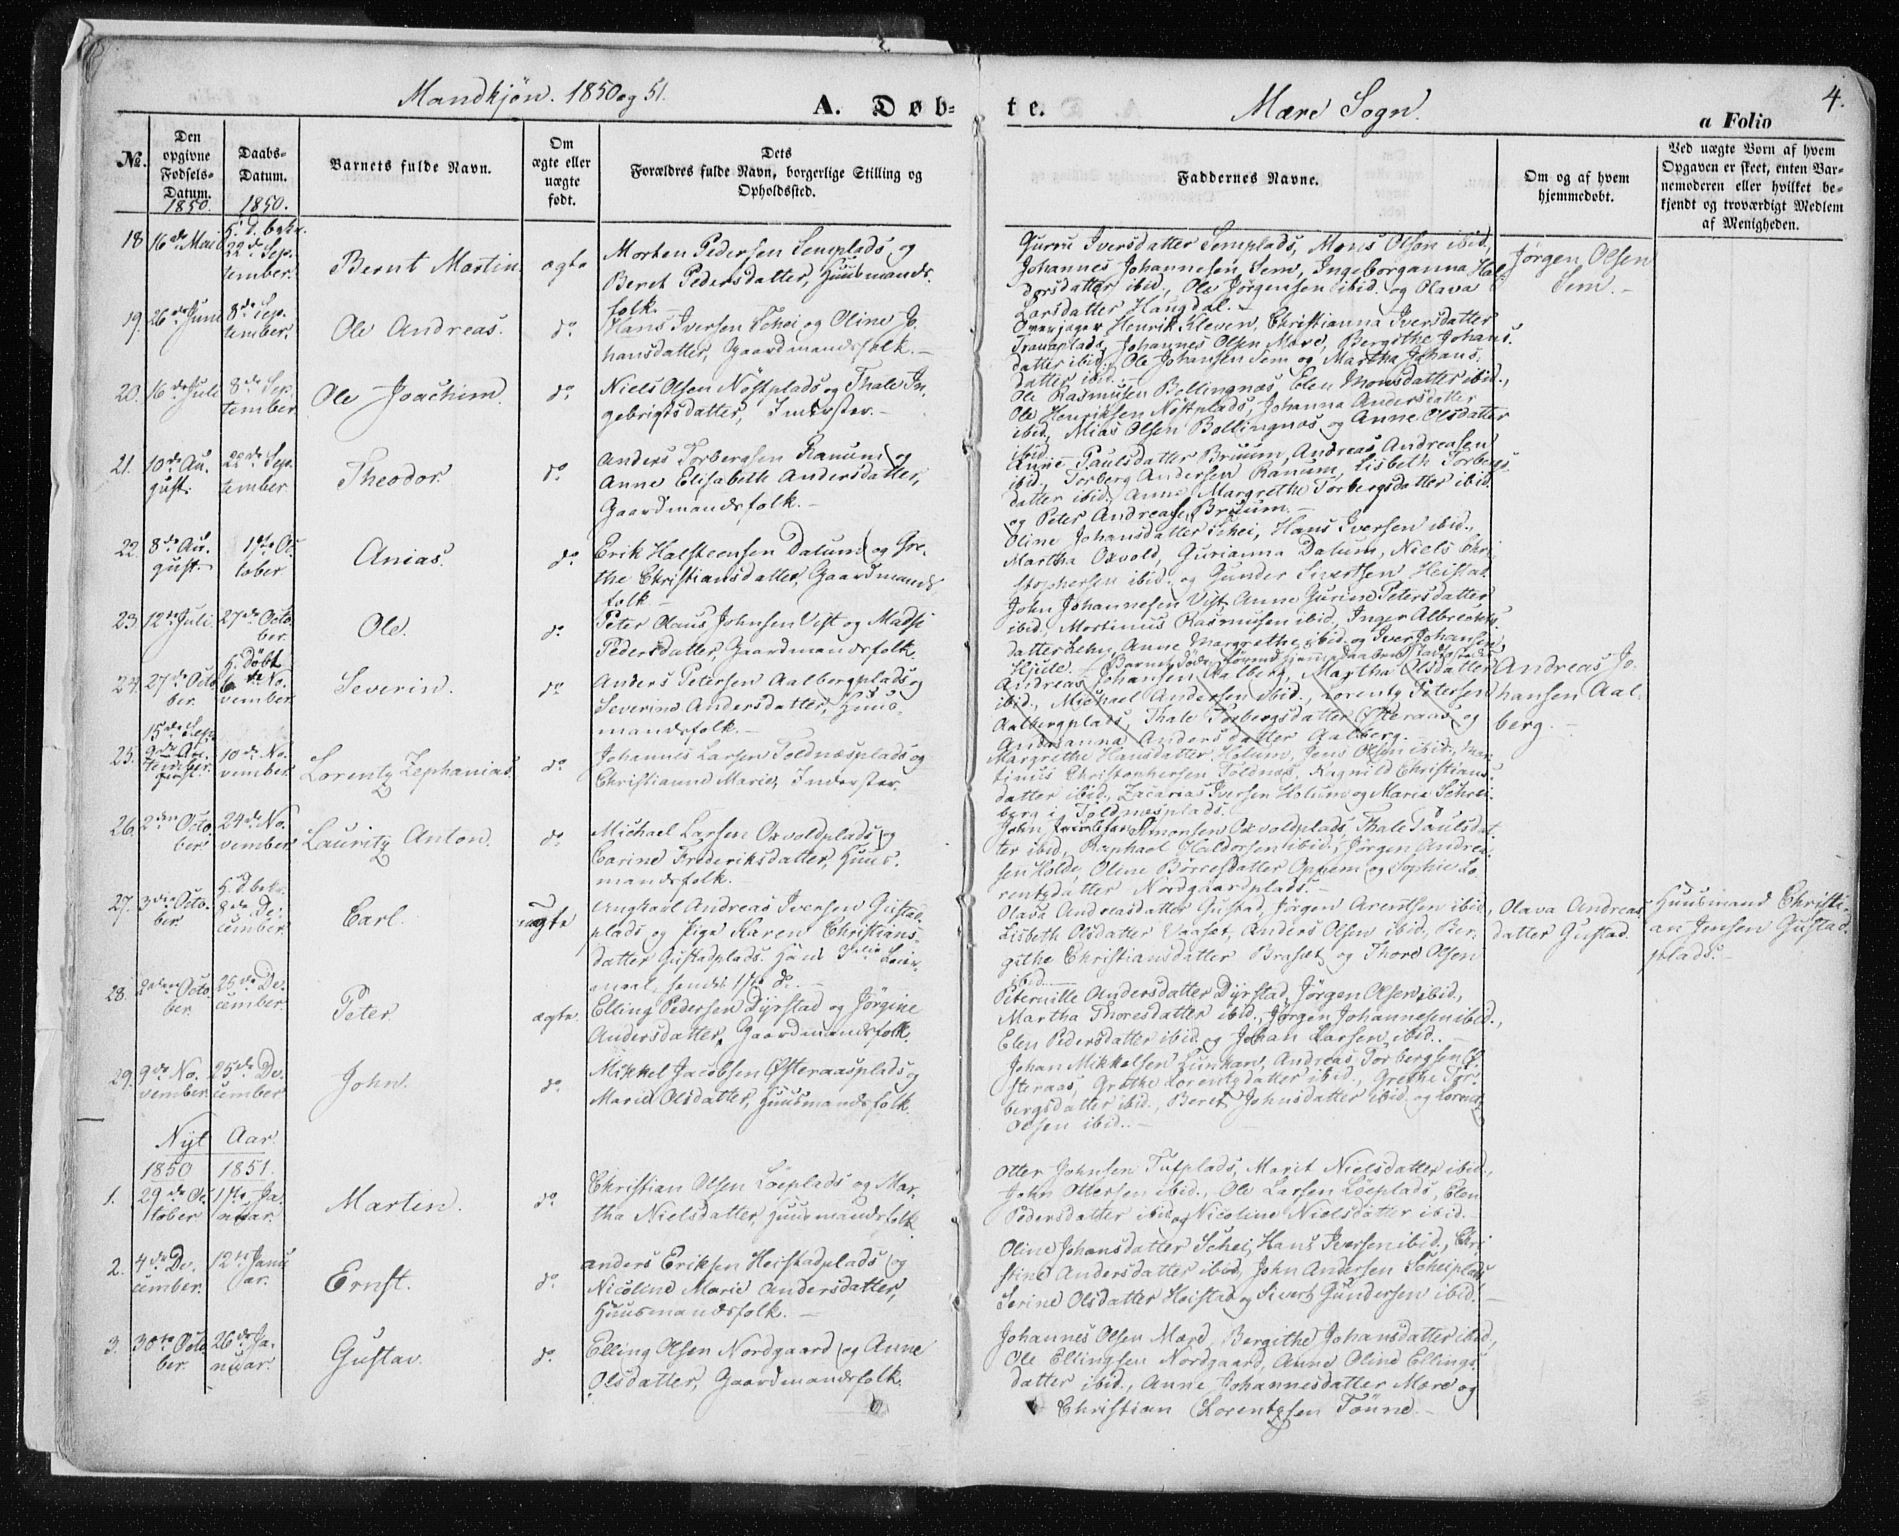 Mandkjøn. 1850 og 51.
A. Døb-
te.
Mære Sogn.
4.
a Folio
No.
Den opgivne Fødsels-Datum. 1850.
Daabs-Datum. 1850.
Barnets fulde Navn.
Om ægte eller uægte født.
Dets Forældres fulde Navn, borgerlige Stilling og Opholdssted.
Faddernes Navne.
Om og af hvem hjemmedøbt.
Ved uægte Børn af hvem Opgaven er skeet, enten Barnemoderen eller hvilket bekjendt og troværdigt Medlem af Menigheden.
18. 16de Mai
H. d. bekr. 22de Sep-
tember.
Bernt Martin.
ægte
Morten Pedersen Semplads og
Beret Pedersdatter, Huusmands-
folk.
Guru Iversdatter Semplads, Mons Olsen ibid,
Johannes Johannesen Sem, Ingeborganna Hal-
dorsdatter ibid., Ole Jørgensen ibid. og Olava
Larsdatter Haugdal.
Jørgen Olsen
Sem.
19. 26de Juni
8de Sep-
tember.
Ole Andreas.
do
Hans Iversen Schei og Oline Jo-
hansdatter, Gaardmandsfolk.
Overjæger Henrik Kleven, Christianna Iversdatter
Tranaplads, Johannes Olsen Mære, Bergithe Johans-
datter ibid., Ole Johansen Sem og Martha Johans-
datter ibid.
20. 16de Juli
8de Sep-
tember
Ole Joachim.
do
Niels Olsen Nøstplads og Thale In-
gebrigtsdatter, Inderster.
Ole Rasmusen Bollingnæs, Elen Monsdatter ibid.,
Ole Henriksen Nøstplads, Johanna Andersdatter
ibid, Mias Olsen Bollingnæs og Anne Olsdatter
ibid.
21. 10de Au-
gust.
22de Sep-
tember
Theodor.
do
Anders Torbergsen Ranum og
Anne Elisabeth Andersdatter,
Gaardmandsfolk.
Anne Paulsdatter Bruum, Andreas Andreasen
ibid, Torberg Andersen Ranum, Lisbeth Torbergs-
datter ibid, Anne Margrethe Torbergsdatter ibid.
og Peter Andreasen Bruum.
22. 8de Au-
gust.
1ste Oc-
tober.
Anias.
do
Erik Halsteensen Dalum og Gre-
the Christiansdatter, Gaardmands-
folk
Oline Johansdatter Schei, Hans Iversen ibid.,
Martha Oxvold, Gurianna Dalum, Niels Chri-
stophersen ibid. og Gunder Sivertsen Heistad.
23. 12te Juli.
27de Octo-
ber.
Ole.
do
Peter Olaus Johnsen Vist og Madsi
Pedersdatter, Gaardmandsfolk.
John Johannesen Vist, Anne Gurine Petersdatter
ibid, Martinus Rasmusen ibid, Inger Albrechts-
datter Lehn, Anne Margrethe ibid. og Iver Johansen
Hjule.
24. 27de Octo-
ber.
H. døbt 6te No-
vember.
Severin.
do
Anders Petersen Aalbergplads og
Severine Andersdatter, Huus-
mandsfolk.
Andreas Johansen Aalberg, Martha Olsdatter
ibid., Michael Andersen ibid., Lorentz Petersen
Aalbergplads, Thale Torbergsdatter Østeraas og
Andersanna Andersdatter Aalberg.
Andreas Jo-
hansen Aal-
berg.
25.
10de No-
vember.
Lorentz Zephanias.
do
Johannes Larsen Toldnæsplads og
Christianne Marie, Inderster.
Margrethe Hansdatter Holum, Jens Olsen ibid., Mar-
tinus Christophersen Toldnæs, Ragnild Christians-
datter ibid., Zacarias Iversen Holum og Marie Schrei-
berg i Toldnæsplads.
26. 2den Octo-
ber
24de No-
vember
Lauritz Anton.
do
Michael Larsen Oxvoldplads og
Carine Frederiksdatter, Huus-
mandsfolk.
John Simonsen Oxvoldplads, Thale Paulsdat-
ter ibid, Raphael Haldorsen ibid., Jørgen Andrea-
sen Holde, Oline Børresdatter Oppem og Sophie Lo-
rentzdatter Nordgaardplads.
27. 3die Octo-
ber.
H. d. bekr. 8de De-
cember.
Carl.
uægte
Ungkarl Andreas Iversen Gustad-
plads og Pige Karen Christians-
datter Gustadplads. Hans
maal, hendes 1ste do.
Olava Andreasdatter Gustad, Jørgen Arentsen ibid,
Lisbeth Olsdatter Vaaset, Anders Olsen ibid, Ber-
githe Christiansdatter Braset og Thore Olsen
ibid.
Olava Andreas-
datter Gustad.
Huusmand Christi-
an Jensen Gustad-
plads.
28. 2den Octo-
ber
25de De-
cember.
Peter.
ægte.
Elling Pedersen Dyrstad og Jørgine
Andersdatter, Gaardmandsfolk.
Peternille Andersdatter Dyrstad, Jørgen Olsen ibid,
Martha Thoresdatter ibid., Jørgen Johannesen ibid.,
Elen Pedersdatter ibid. og Johan Larsen ibid.
29. 9de No-
vember
25de De-
cember
John.
do
Mikkel Jacobsen Østeraasplads og
Marie Olsdatter, Huusmandsfolk.
Johan Mikkelsen Lunkan, Andreas Torbergsen Ø-
steraas, Grethe Lorentzdatter ibid., Grethe Tor-
bergsdatter ibid., Beret Johnsdatter ibid. og Lorentz
Olsen ibid.
Nyt Aar.
1850 1851.
1. 29de Oc-
tober
1ste Ja-
nuar.
Martin.
do
Christian Olsen Løeplads og Mar-
tha Nielsdatter, Huusmandsfolk
Otter Johnsen Tufplads, Marit Nielsdatter ibid.,
John Ottersen ibid., Ole Larsen Løeplads, Elen
Pedersdatter ibid og Nicoline Nielsdatter ibid.
2. 4de De-
cember.
12te Janu-
ar.
Ernst.
do
Anders Eriksen Heistadplads og
Nicoline Marie Andersdatter,
Huusmandsfolk.
Oline Johansdatter Schei, Hans Iversen ibid., Chri-
stine Andersdatter ibid, John Andersen Scheiplads
Serine Olsdatter Heistad og Sivert Gundersen ibid.
3. 30te Octo-
ber.
26de Ja-
nuar.
Gustav.
do
Elling Olsen Nordgaard og Anne
Olsdatter, Gaardmandsfolk.
Johannes Olsen Mære, Bergithe Johansdatter ibid,
Ole Ellingsen Nordgaard, Anne Oline Ellings-
datter ibid., Anne Johannesdatter Mære og
Christian Lorentzsen Tønne.